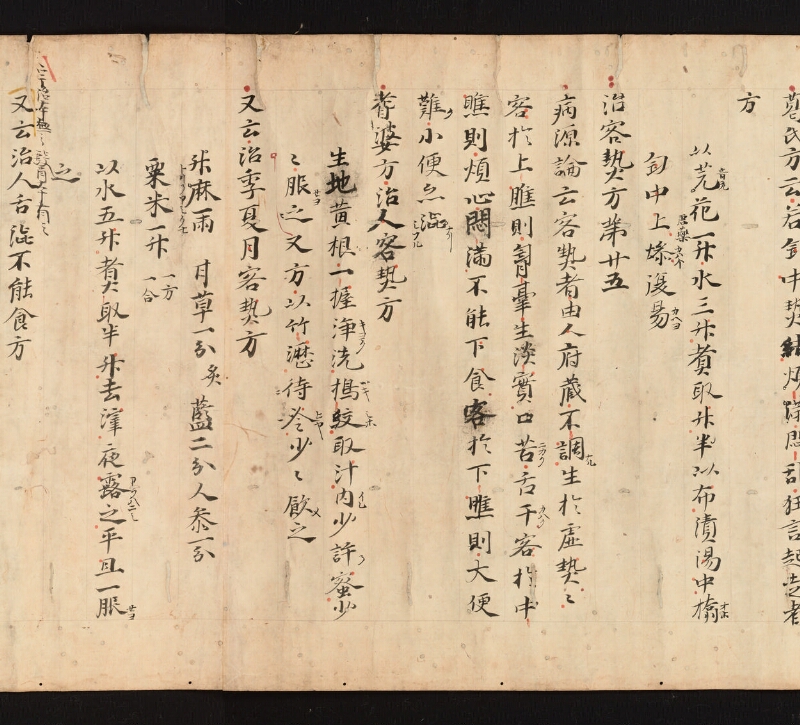 葛氏方云若匈中熱結煩躁悶乱狂言起走者
方
以芫花一升水三升煮取升半以布漬湯中搨
匈中上燥復易
治客熱方第廿五
病源論云客熱者由人府蔵不調生於虚熱〻
客於上膲則胷鬲生淡實口苦舌干客於中
膲則煩心悶滿不能下食客於下膲則大便
難小便亦澁
耆婆方治人客熱方
生地黄根一握淨洗搗絞取汁内少許蜜少
〻服之又方以竹瀝待冷少〻飲之
又云治季夏月客熱方
升麻兩 甘草一分炙 藍二分人参一分
粟米一升 一方一合
以水五升煮取半升去滓夜露之平旦一服
之
又云治人舌澁不能食方